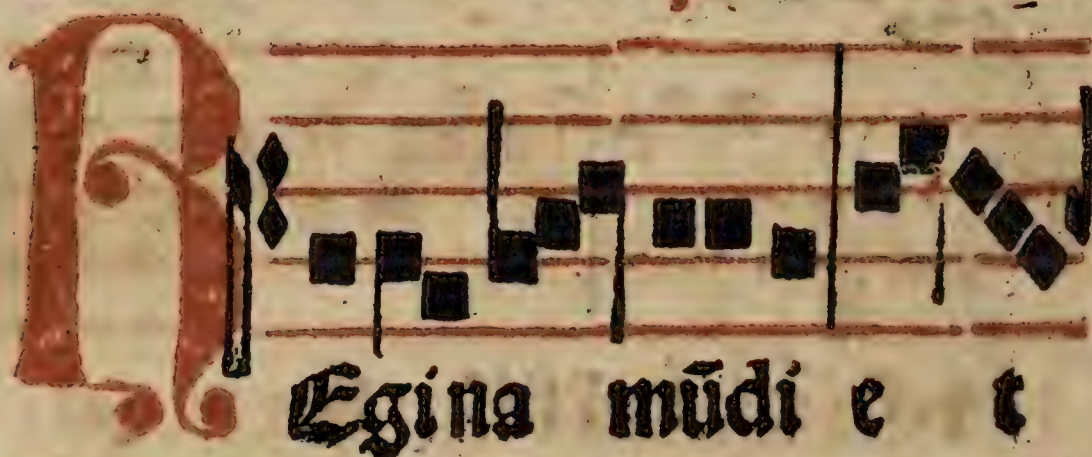 REgina mūdi e t